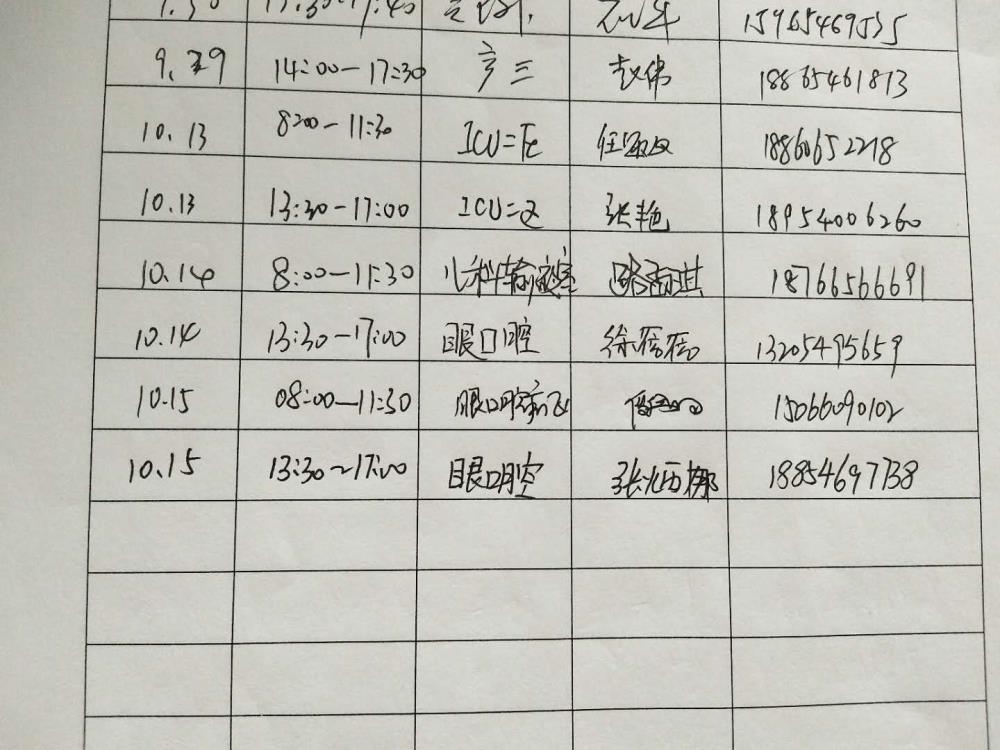 15965469535
9.29 14:00-17:30 产三 赵伟 18865461813
10.13 8:00-11:30 ICU=区 18860652218
10.13 13:30-17:00 ICU=区 张艳 18954006260
10.14 8:00-11:30 儿科输液室 18766566691
10.14 13:30-17:00 眼口腔 徐蓓蓓 13205495659
10.15 08:00-11:30 眼口腔 15066090102
10.15 13:30~17:00 眼口腔 张炳娜 18854697738